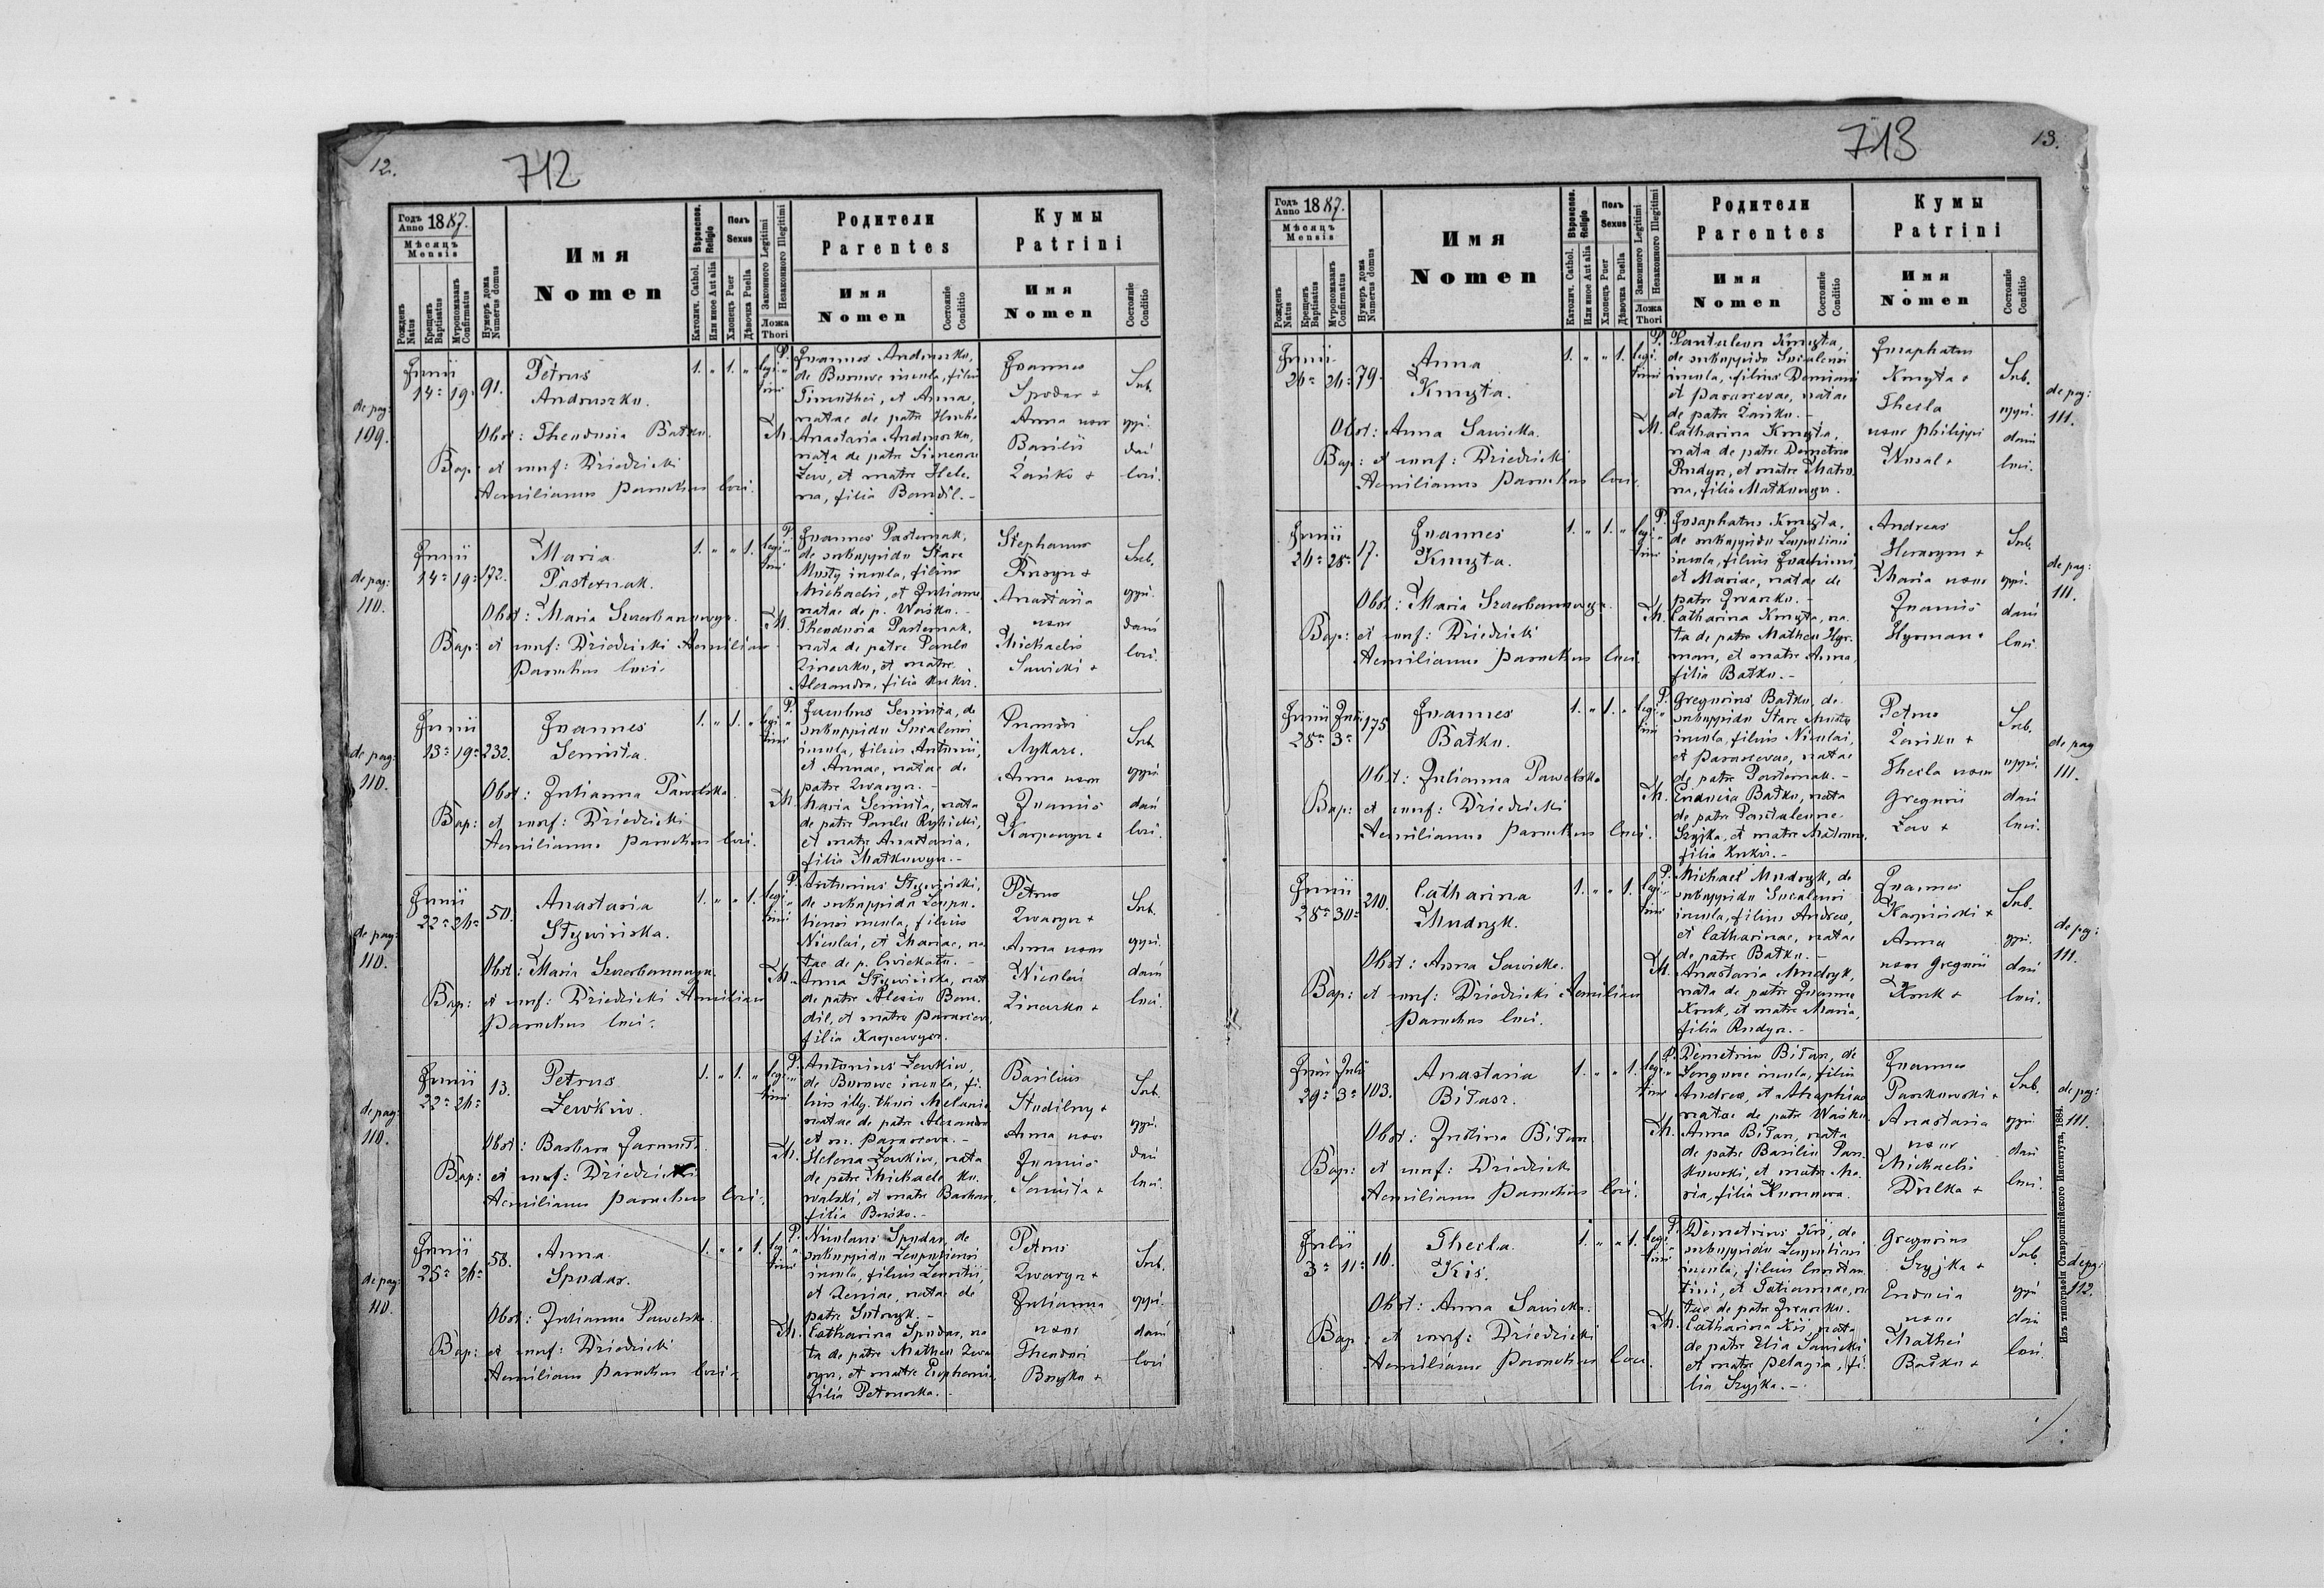 12.
712
Годъ
Anno 1887.
Мѣсяцъ
Mensis
Рожденъ
Natus
Крещенъ
Baptisatus
Мѵропомазанъ
Confirmatus
Нумеръ дома
Numerus domus
Имя
Nomen
Вѣроиспов.
Religio
Католич. Cathol.
Или иное Aut alia
Полъ
Sexus
Хлопецъ Puer
Дѣвочка Puella
Законного Legitimi
Незаконного Illegitimi
Ложа
Thori
Родители
Parentes
Имя
Nomen
Состояніе
Conditio
Кумы
Patrini
Имя
Nomen
Состояніе
Conditio
de pag:
109.
Junii
14 19 91.
Petrus
Andruszko.
Obst: Theodosia Batko.
Bap: et conf: Dziedzicki
Aemilianus Parochus loci.
1. " 1. " legitimi
P. Joannes Andruszko,
incola, filius
Timothei, et Annae,
natae de patre
M. Anastasia Andruszko,
nata de patre Simeone
Zew, et matre Hele-
na, filia Bandil.-
Joannes
Spodar +
Anna uxor
Basilii
Zańko +
Sub.
oppi-
dani
loci.
de pag:
110.
Junii
14 19 172.
Maria
Pasternak.
Obst: Maria Szczerbanowycz.
Bap: et conf: Dziedzicki Aemilian
Parochus loci.
1. " " 1. legitimi
P. Joannes Pasternak,
de suboppido Stare
Misty incola, filius
Michaelis, et Julianna,
natae de p. Waśko.-
M. Theodosia Pasternak,
nata de patre Paulo
Zinczko, et matre
Alexandra, filia Kukiz.
Stephanus
Rusyn +
Anastasia
uxor
Michaelis
Sawicki +
Sub.
oppi.
dani
loci.
de pag:
110.
Junii
13 19 232.
Joannes
Seniuta.
Obst: Julianna Pawelska.
Bap: et conf: Dziedzicki
Aemilianus Parochus loci.
1. " 1. " legitimi
P. Jacobus Seniuta, de
suboppido Sucalensi
incola, filius Antonii,
et Annae, natae de
patre Zwarycz.-
M. Maria Seniuta, nata
de patre Paulo Rybicki,
et matre Anastasia,
filia Matkowycz.-
Anna uxor
Joannis
Karpowycz +
Sub.
oppi.
dani
loci.
de pag:
110.
Junii
22 24 50.
Anastasia
Stywińska.
Obst: Maria Szczerbanowycz.
Bap: et conf: Dziedzicki Aemilian
Parochus loci.
1. " " 1. legitimi
P. Antonius Stywiński,
de suboppido Zenpo-
linensi incola, filius
Nicolai, et Mariae, na-
tae de p. Cwiekata.-
M. Anna Stywińska, nat
de patre Alexio Ban-
dil, et matre Parasceva,
filia Karpowycz.
Petrus
Zwarycz +
Anna uxor
Nicolai
Zinczko +
Sub.
oppi.
dani
loci.
de pag:
110.
Junii
22 24 13.
Petrus
Zewkiw.
Obst: Barbara Jarmuta
Bap: et conf: Dziedzicki
Aemilianus Parochus loci.
1. " 1. " legitimi
P. Antonius Zewkiw,
incola, fi-
lius illg. thori Melanie
natae de patre Alexandro
et m. Parasceva.-
M. Helena Zewkiw, nata
de patre Michaele Ko-
walski, et matre Barbara,
filia Bośko.-
Basilius
Studilny +
Anna uxor
Joannis
Seniuta +
Sub.
oppi.
dani
loci.
de pag:
110.
Junii
25 26 58.
Anna
Spodar.
Obst: Julianna Pawelska.
Bap: et conf: Dziedzicki
Aemilianus Parochus loci.
1. " " 1. legitimi
P. Nicolaus Spodar, de
suboppido
incola, filius Leontii,
et Xeniae, natae de
patre
M. Catharina Spodar, na-
ta de patre Matheo Zwa-
rycz, et matre Euphemia,
filia Petruszka.-
Petrus
Zwarycz +
Julianna
uxor
Theodori
Bożyko +
Sub.
oppi.
dani
loci
713
13.
Годъ
Anno 1887.
Мѣсяцъ
Mensis
Рожденъ
Natus
Крещенъ
Baptisatus
Мѵропомазанъ
Confirmatus
Нумеръ дома
Numerus domus
Имя
Nomen
Вѣроиспов.
Religio
Католич. Cathol.
Или иное Aut alia
Полъ
Sexus
Хлопецъ Puer
Дѣвочка Puella
Законного Legitimi
Незаконного Illegitimi
Ложа
Thori
Родители
Parentes
Имя
Nomen
Состояніе
Conditio
Кумы
Patrini
Имя
Nomen
Состояніе
Conditio
Junii
26 26 79.
Anna
Kmyta.
Obst: Anna Sawicka.
Bap: et conf: Dziedzicki
Aemilianus Parochus loci.
1. " " 1. legitimi
P. Pantaleon Kmyta,
de suboppido Sucalensi
incola, filius Demiani
et Parascevae, natae
de patre Zańko.-
M. Catharina Kmyta,
nata de patre Demetrio
Rudycz, et matre Matro-
na, filia Matkowycz.
Josaphatus
Kmyta +
Thecla
uxor Philippi
Sub.
oppi.
dani
loci.
de pag:
111.
Junii
26 28 17.
Joannes
Kmyta.
Obst: Maria Szczerbanowycz.
Bap: et conf: Dziedzicki
Aemilianus Parochus loci.
1. " 1. " legitimi
P. Josaphatus Kmyta,
de suboppido
incola, filius Joachimi
et Mariae, natae de
patre Iwaszko.-
M. Catharina Kmyta, na-
ta de patre Matheo Hyr-
man, et matre Anna,
filia Batko.-
Andreas
Harasym +
Maria uxor
Joannis
Hyrman +
Sub.
oppi.
dani
loci.
de pag:
111.
Junii Julii
28 3 175
Joannes
Batko.
Obst: Julianna Pawelska
Bap: et conf: Dziedzicki
Aemilianus Parochus loci.
1. " 1. " legitimi
P. Gregorius Batko, de
suboppido Stare Misty
incola, filius Nicolai,
et Parascevae, natae
de patre Pasternak.-
M. Eudocia Batko, nata
de patre Pantaleone
Szyjka, et matre Matrona,
filia Kukiz.-
Petrus
Zańko +
Thecla uxor
Gregorii
Zew +
Sub.
oppi.
dani
loci.
de pag
111.
Junii
28 30 210.
Catharina
Mudryk.
Obst: Anna Sawicka.
Bap: et conf: Dziedzicki Aemilian
Parochus loci.
1. " " 1. legitimi
P. Michael Mudryk, de
suboppido Sucalensi
incola, filius Andreae,
et Catharinae, natae
de patre Batko.-
M. Anastasia Mudryk,
nata de patre Joanne
Kruk, et matre Maria,
filia Rudycz.-
Joannes
Kamiński +
Anna
uxor Gregorii
Kruk +
Sub.
oppi.
dani
loci.
de pag:
111.
Junii Julii
29 3 103.
Anastasia
Biłasz.
Obst: Justina Biłan
Bap: et conf: Dziedzicki
Aemilianus Parochus loci.
1. " " 1. legitimi
P. Demetrius Biłan, de
incola, filius
Andreae, et Agaphiae
natae de patre Waśko.
M. Anna Biłan, nata
de patre Basilio Pasz-
kowski, et matre Ma-
ria, filia
Joannes
Paszkowski +
Anastasia
uxor
Michaelis
Dulka +
Sub.
oppi.
dani
loci.
de pag:
111.
Julii
3 11 16.
Thecla
Kis.
Obst: Anna Sawicka.
Bap: et conf: Dziedzicki
Aemilianus Parochus loci.
1. " " 1. legitimi
P. Demetrius Kis, de
suboppido
incola, filius Constan-
tini, et Tatiannae, na-
tae de patre Iwaszko.
M. Catharina Kis, nata
de patre Elia Sawicki
et matre Pelagia, fi-
lia Szyjka.-
Gregorius
Szyjka +
Eudocia
uxor
Mathei
Batko +
Sub.
oppi
dani
loci.
de pag:
112.
Изъ типографіи Ставропигійского Института, 1884.